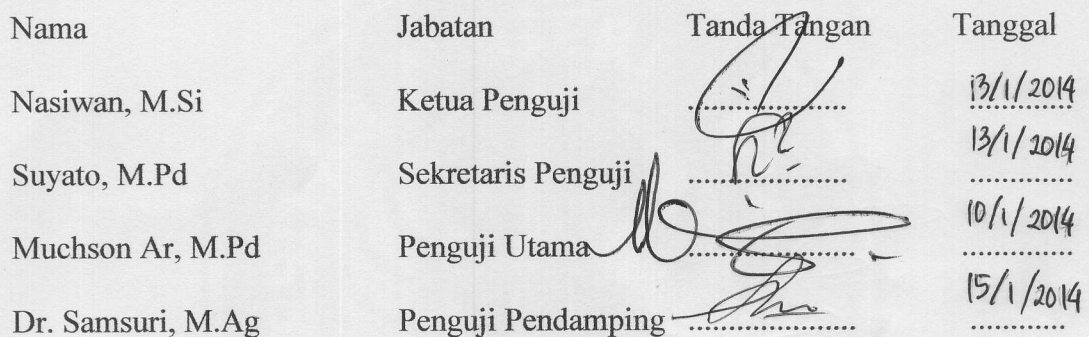 Nama Jabatan Tanda Tangan Tanggal
Nasiwan, M.Si Ketua Penguji .................... 13/1/2014
Suyato, M.Pd Sekretaris Penguji .................... 13/1/2014
Muchson Ar, M.Pd Penguji Utama .................... 10/1/2014
Dr. Samsuri, M.Ag Penguji Pendamping .................... 15/1/2014